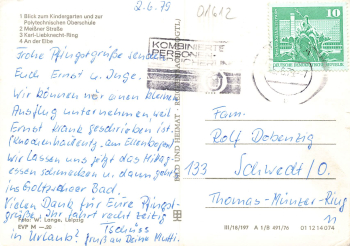 1 Blick zum Kindergarten und zur
Polytechnischen Oberschule
2 Meißner Straße
3 Karl-Liebknecht-Ring
4 An der Elbe
2.6.79
01612
KOMBINIERTE
PERSO
10
Frohe Pfingstgrüße senden
Euch Ernst u. Inge.
Wir können nur einen kleinen
Ausflug unternehmen, weil
Ernst krank geschrieben ist.
Wir lassen uns jetzt das Mittag
essen schmecken u. dann gehn
ins Bad.
Vielen Dank für Eure Pfingst-
grüße. Ihr fahrt recht zeitig
in Urlaub! Tschüss
Gruß an Deine Mutti.
Fam.
Rolf Dobenzig
133 Schwedt/O.
Thomas-Müntzer-Ring
11
BILD UND HEIMAT
Foto: W. Lange, Leipzig
EVP M —,20
III/18/197 A 1/B 491/76 01 12 14 074